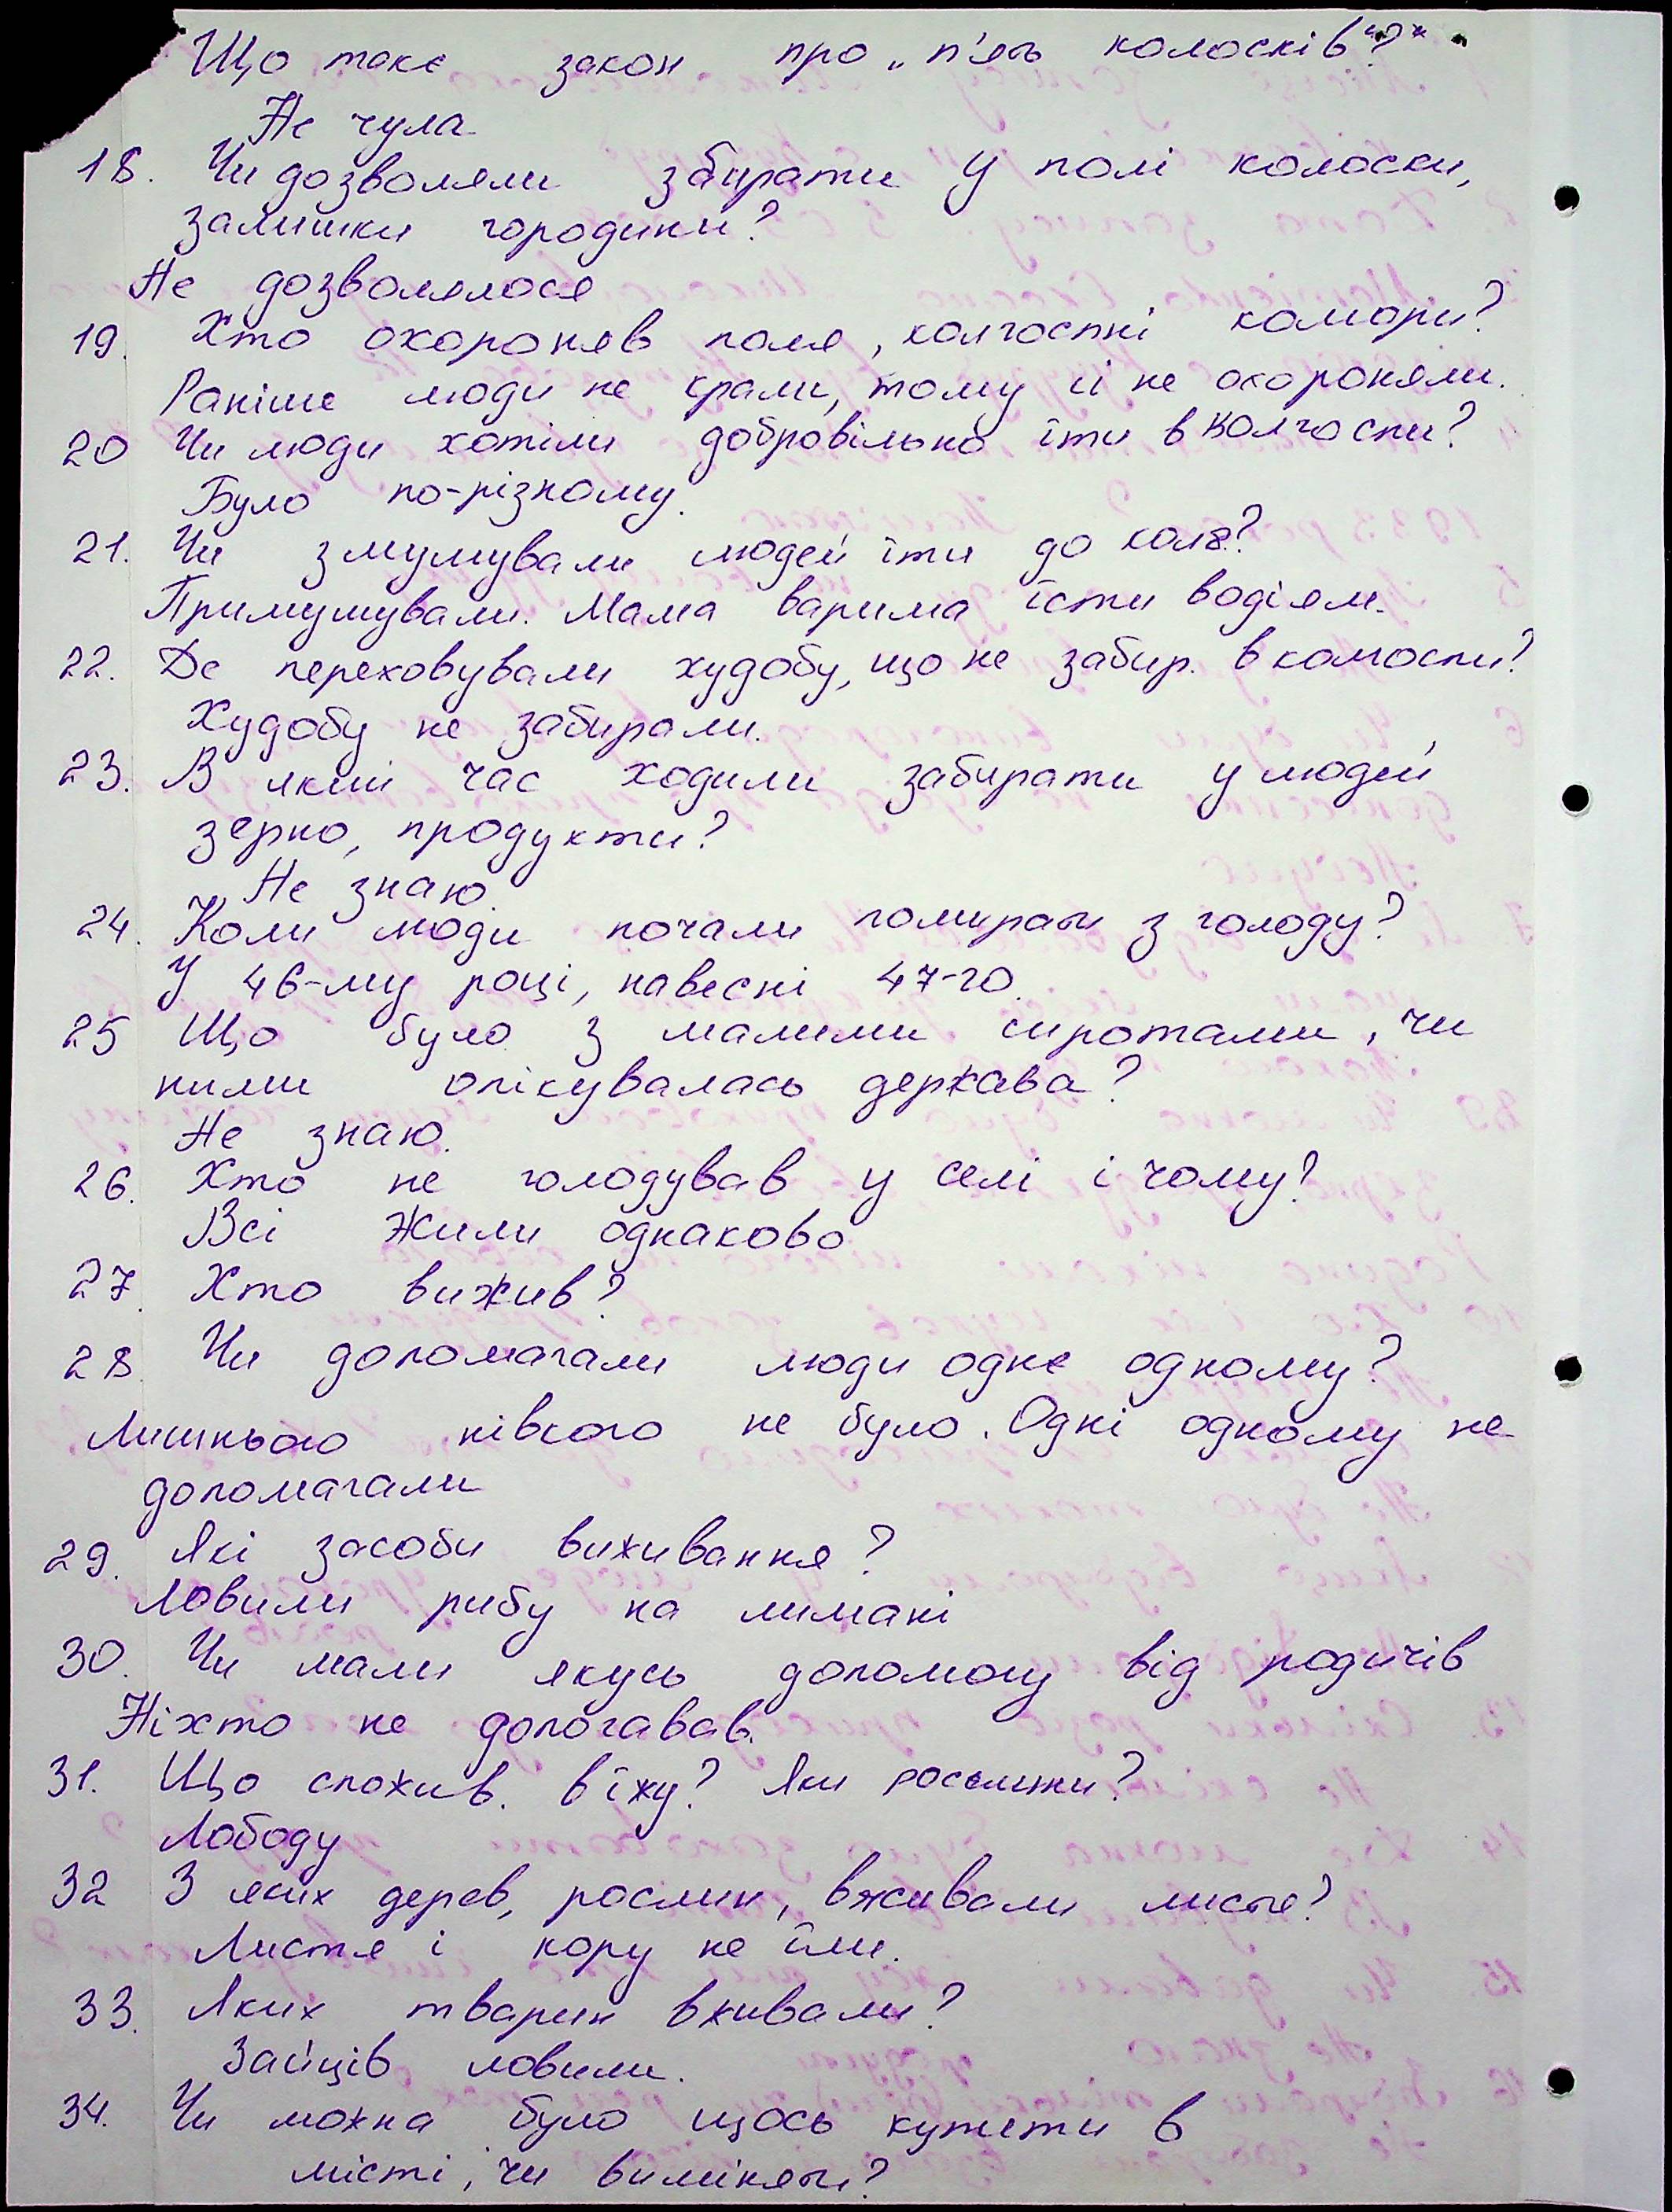 Що таке закон про „п'ять колосків"?
Не чула
18. Чи дозволяли збирати у полі колоски,
залишки городини?
Не дозволялося
19. Хто охороняв поля, колгоспні комори?
Раніше люди не крали, тому її не охороняли.
20 Чи люди хотіли добровільно їти в колгоспи?
Було по-різному.
21. Чи змушували людей їти до колг?
Примушували. Мама варила їсти водіям.
22. Де переховували худобу, що не забир. в колгоспи?
Худобу не забирали.
23. В який час ходили забирати у людей
зерно, продукти?
Не знаю.
24. Коли люди почали помирати з голоду?
У 46-му році, навесні 47-го.
25 Що було з малими сиротами, чи
ними опікувалась держава?
Не знаю.
26. Хто не голодував у селі і чому?
Всі жили однаково
27. Хто вижив?
28. Чи допомагали люди одне одному?
Лишнього нівкого не було. Одні одному не
допомагали
29. Які засоби виживання?
Ловили рибу на лимані
30. Чи мали якусь допомогу від родичів
Ніхто не допогавав.
31. Що спожив. в їжу? Яки рослини?
Лободу
32 З яких дерев, рослин, вживали листя?
Листя і кору не їли.
33. Яких тварин вживали?
Зайців ловили.
34. Чи можна було щось купити в
місті, чи виміняти?